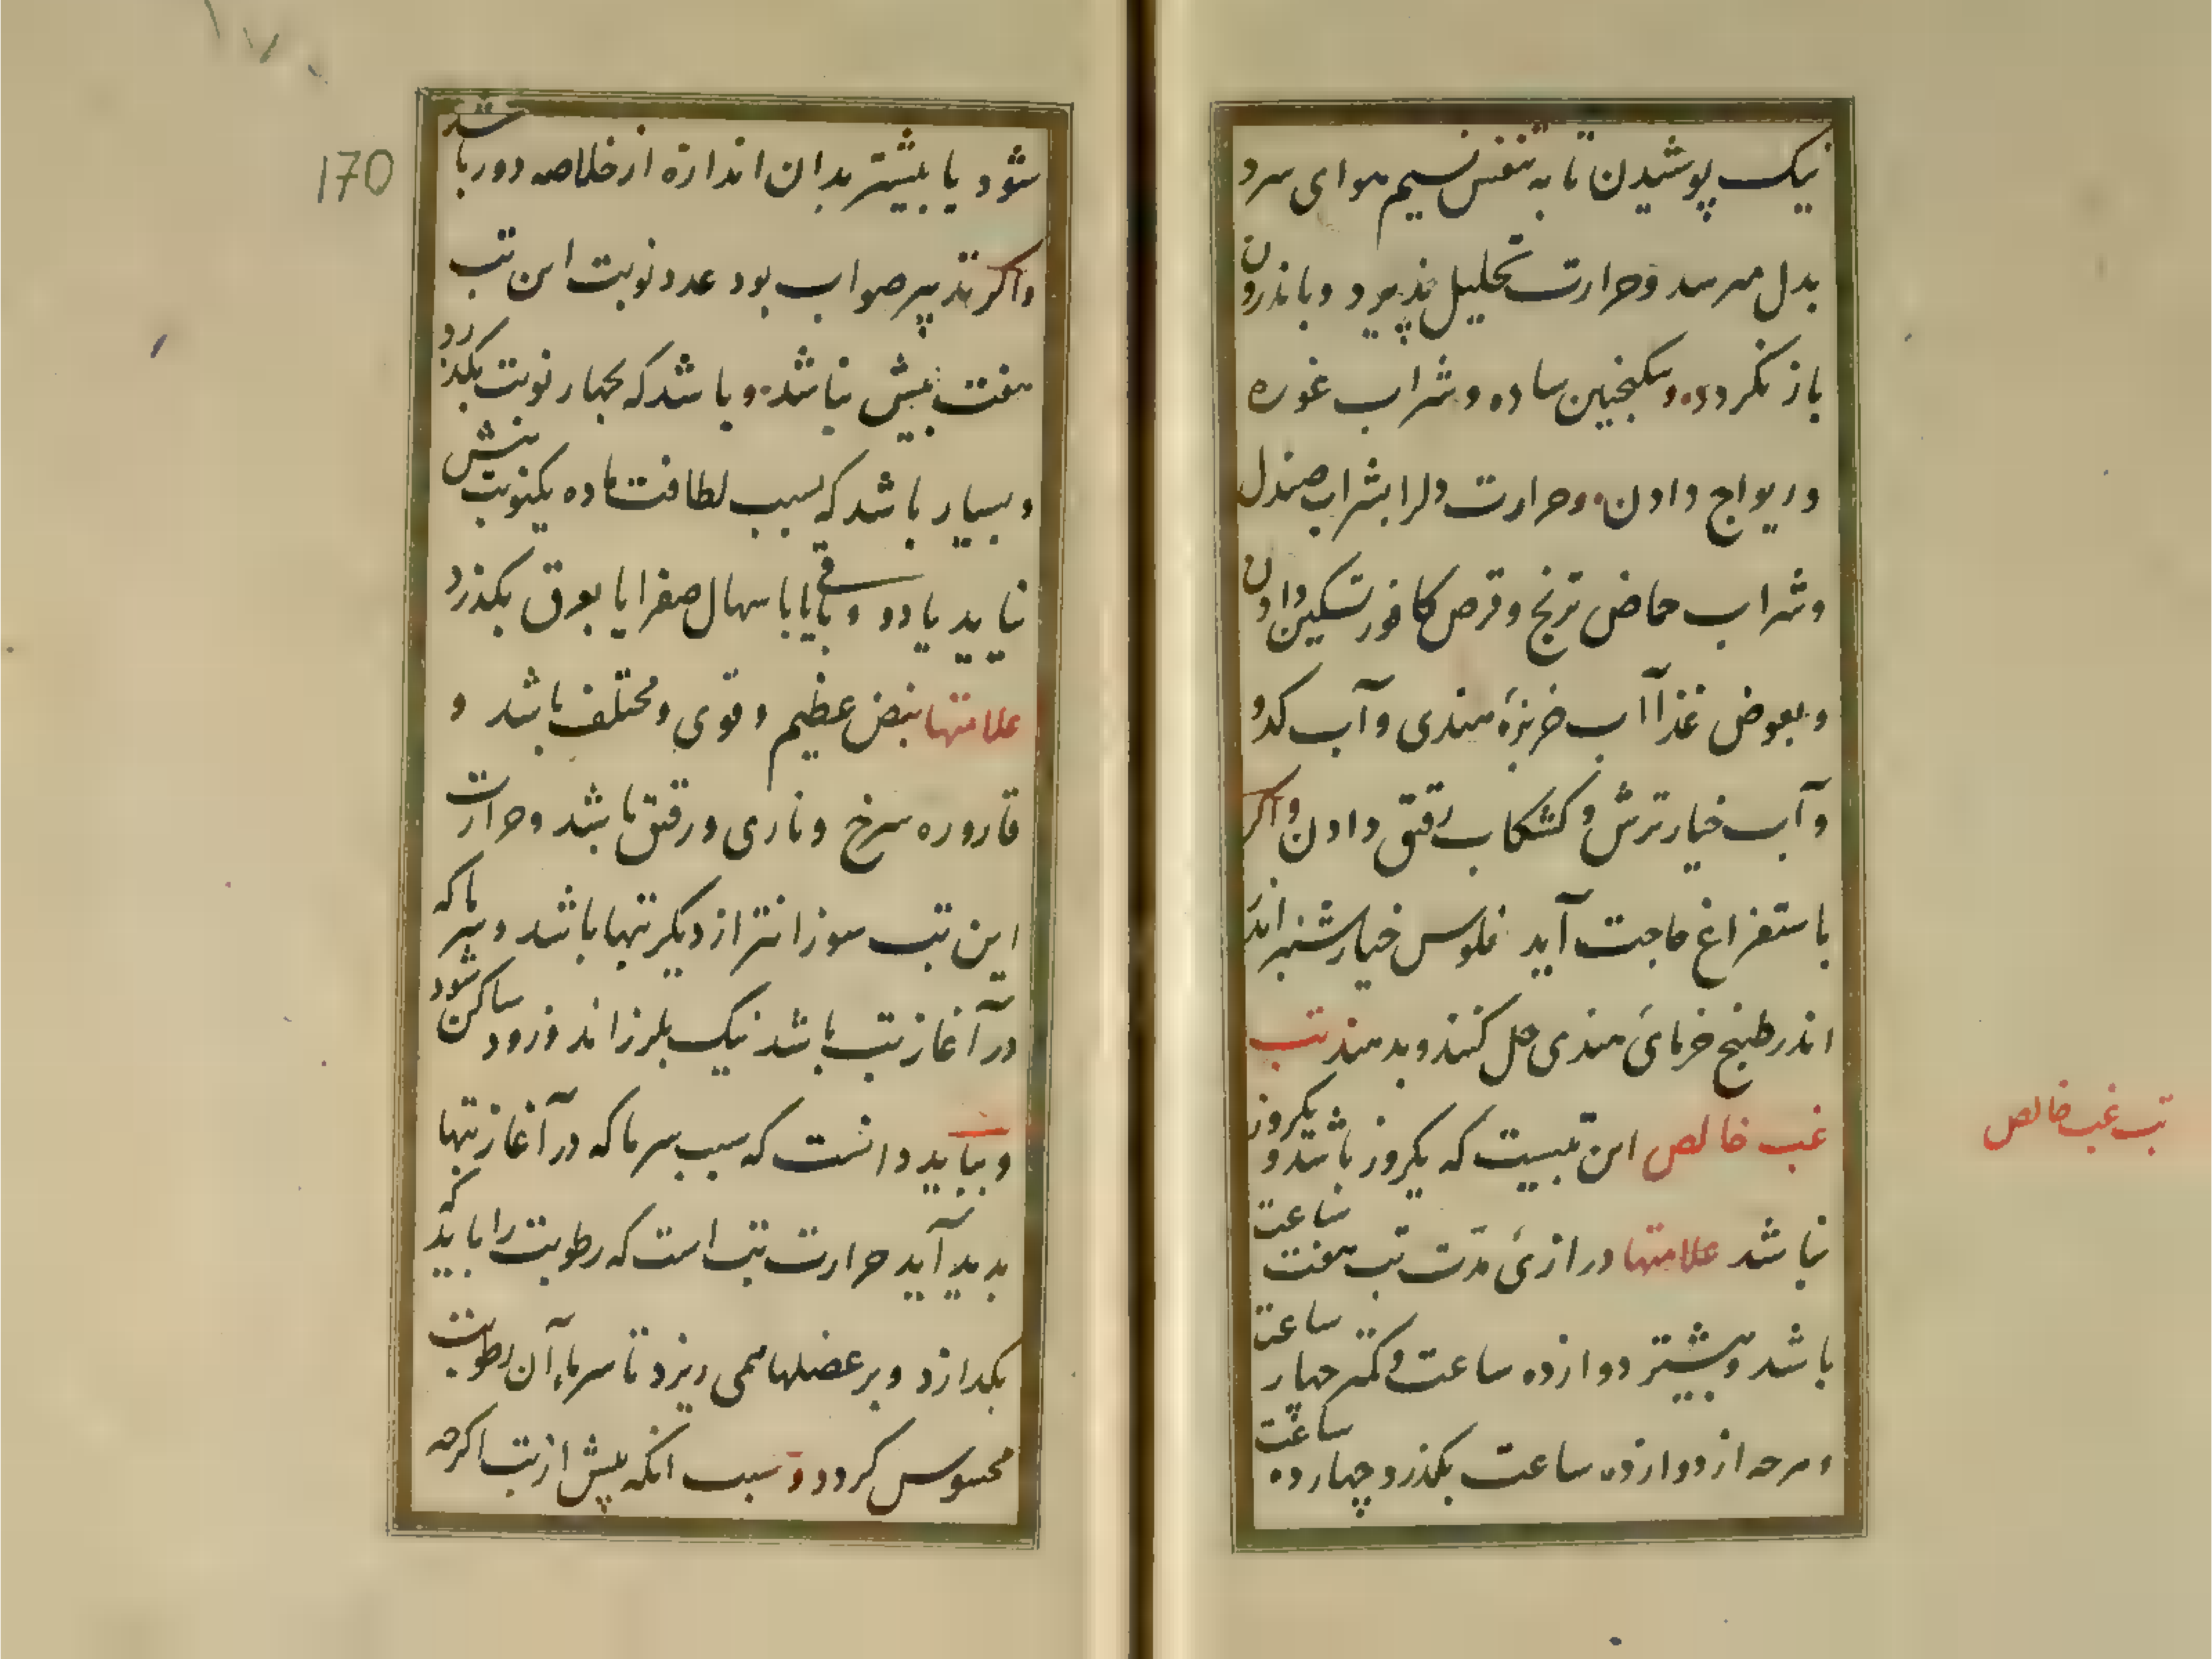 نیک پوشیدن تا به تنفس نسیم هوای سرد
بدل میرسد و حرارت تحلیل پذیرد و باندرون
باز نکردد و سکنجبین ساده و شراب غوره
و ریواج دادن و حرارت دلرا بشراب صندل
و شراب حماض ترنج و قرص کافور تسکین دادن
و بعوض غذا آب خربزهٔ هندی و آب کدو
و آب خیار ترش و کشکاب رقیق دادن و اکر
باستفراغ حاجت آید فلوس خیارشنبر اندر
اندر طبیخ خرمای هندی حل کنند و بدهند تب
غب خالص این تبیست که یکروز باشد و یکروز
تب غب خالص
نباشد علامتها درازی مدت تب هفت ساعت
باشد و بیشتر دوازده ساعت و کمتر چهار ساعت
و هرچه از دوازده ساعت بکذرد چهارده ساعت
شود یا بیشتر بدان اندازه از خلاصه دور باشد
170
واکر تدبیر صواب بود عدد نوبت این تب
هفت بیش نباشد و باشد که بچهار نوبت بکذرد
و بسیار باشد که بسبب لطافت ماده یکنوبت بیش
نیاید یا دو و بقی یا باسهال صفرا یا بعرق بکذرد
علامتها نبض عظیم و قوی و مختلف باشد و
قاروره سرخ و ناری و رقیق باشد و حرارت
این تب سوزانتر از دیکر تبها باشد و سرما که
در آغاز تب باشد نیک بلرزاند و زود ساکن شود
و بباید دانست که سبب سرما که در آغاز تبها
بدید آید حرارت تب است که رطوبت را باید که
بکدازد و بر عضلها همی ریزد تا سرماء آن رطوبت
محسوس کردد و سبب انکه پیش از تب اکرچه